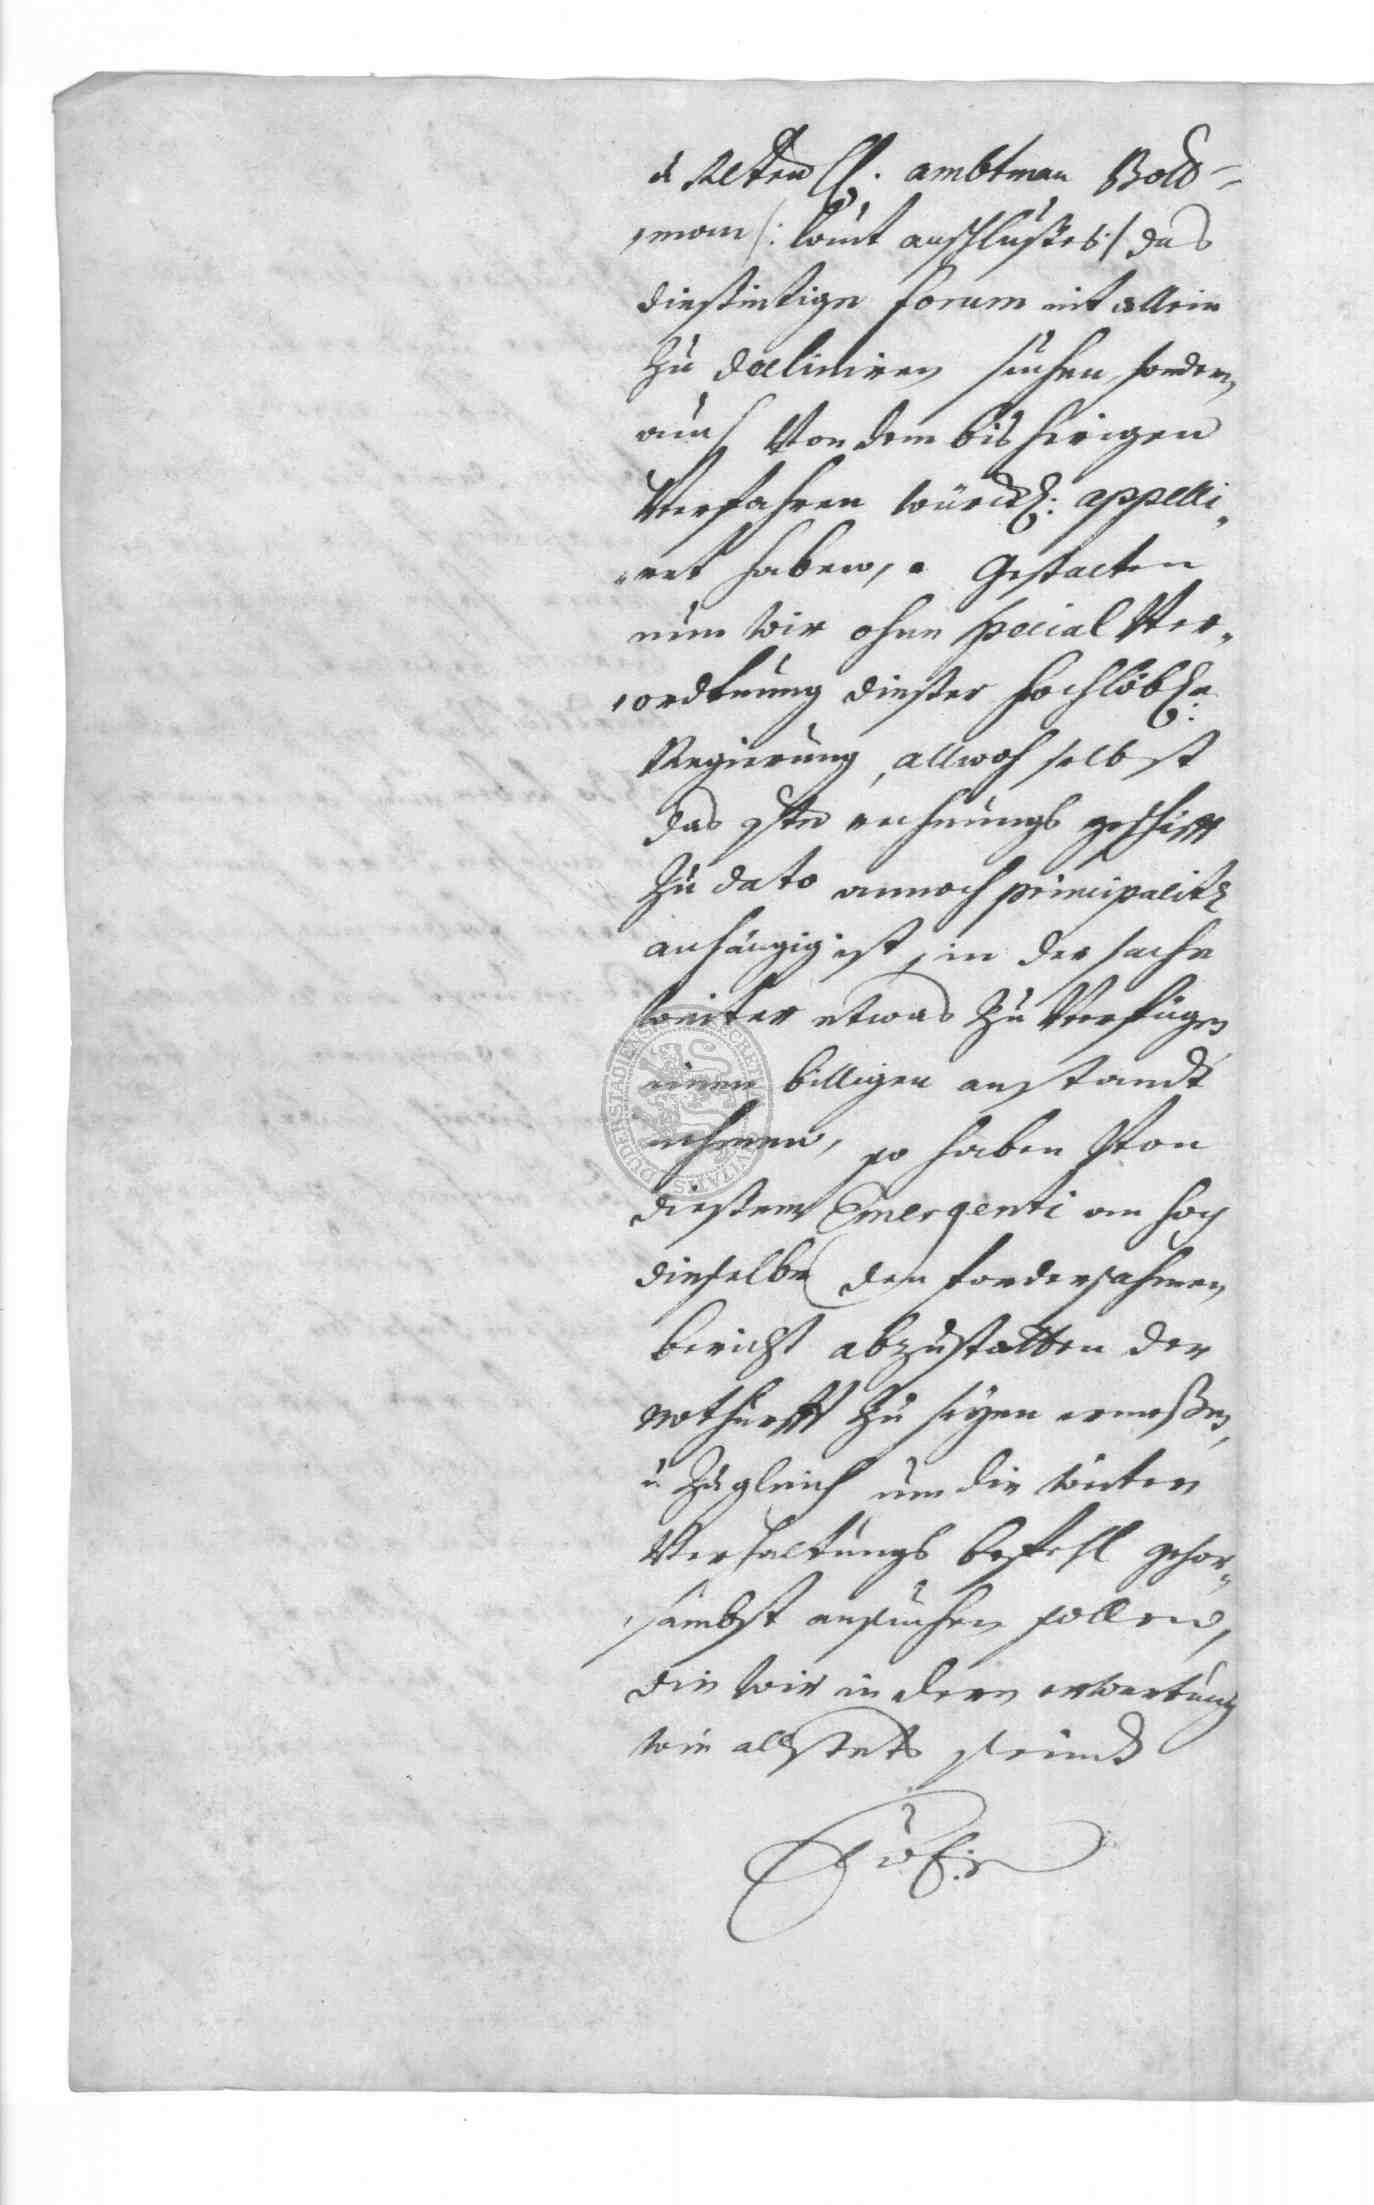 alten H. ambtman Bold-
man /: laut anschlußes :/ das
dießeitige forum nit allein
zu decliniren suchen, sondern
auch Von dem bishirigen
Verfahren würckl: appelli-
ret haben, Gestalten
nun wir ohne special Ver-
ordtnung dießer hochlöbl:
Regierung, allwoh selbst
das rechnungs geschäfft
zu dato annoch principaliter
anhängig ist, in der sache
weiter etwas zu Verfügen
einen billigen anstandt
nehmen, so haben Von
dießem Emergenti an hoch
dieselbe den fordersahmen
bericht abzustatten der
nothurfft zu seyen ermeßen,
u. zugleich um die weitere
Verhaltungs befehl gehor-
sambst ansuchen sollen,
die wir in dern erwartung
wie allstets seind
DUDERSTADIENSIS SECRETUM CIVITATIS